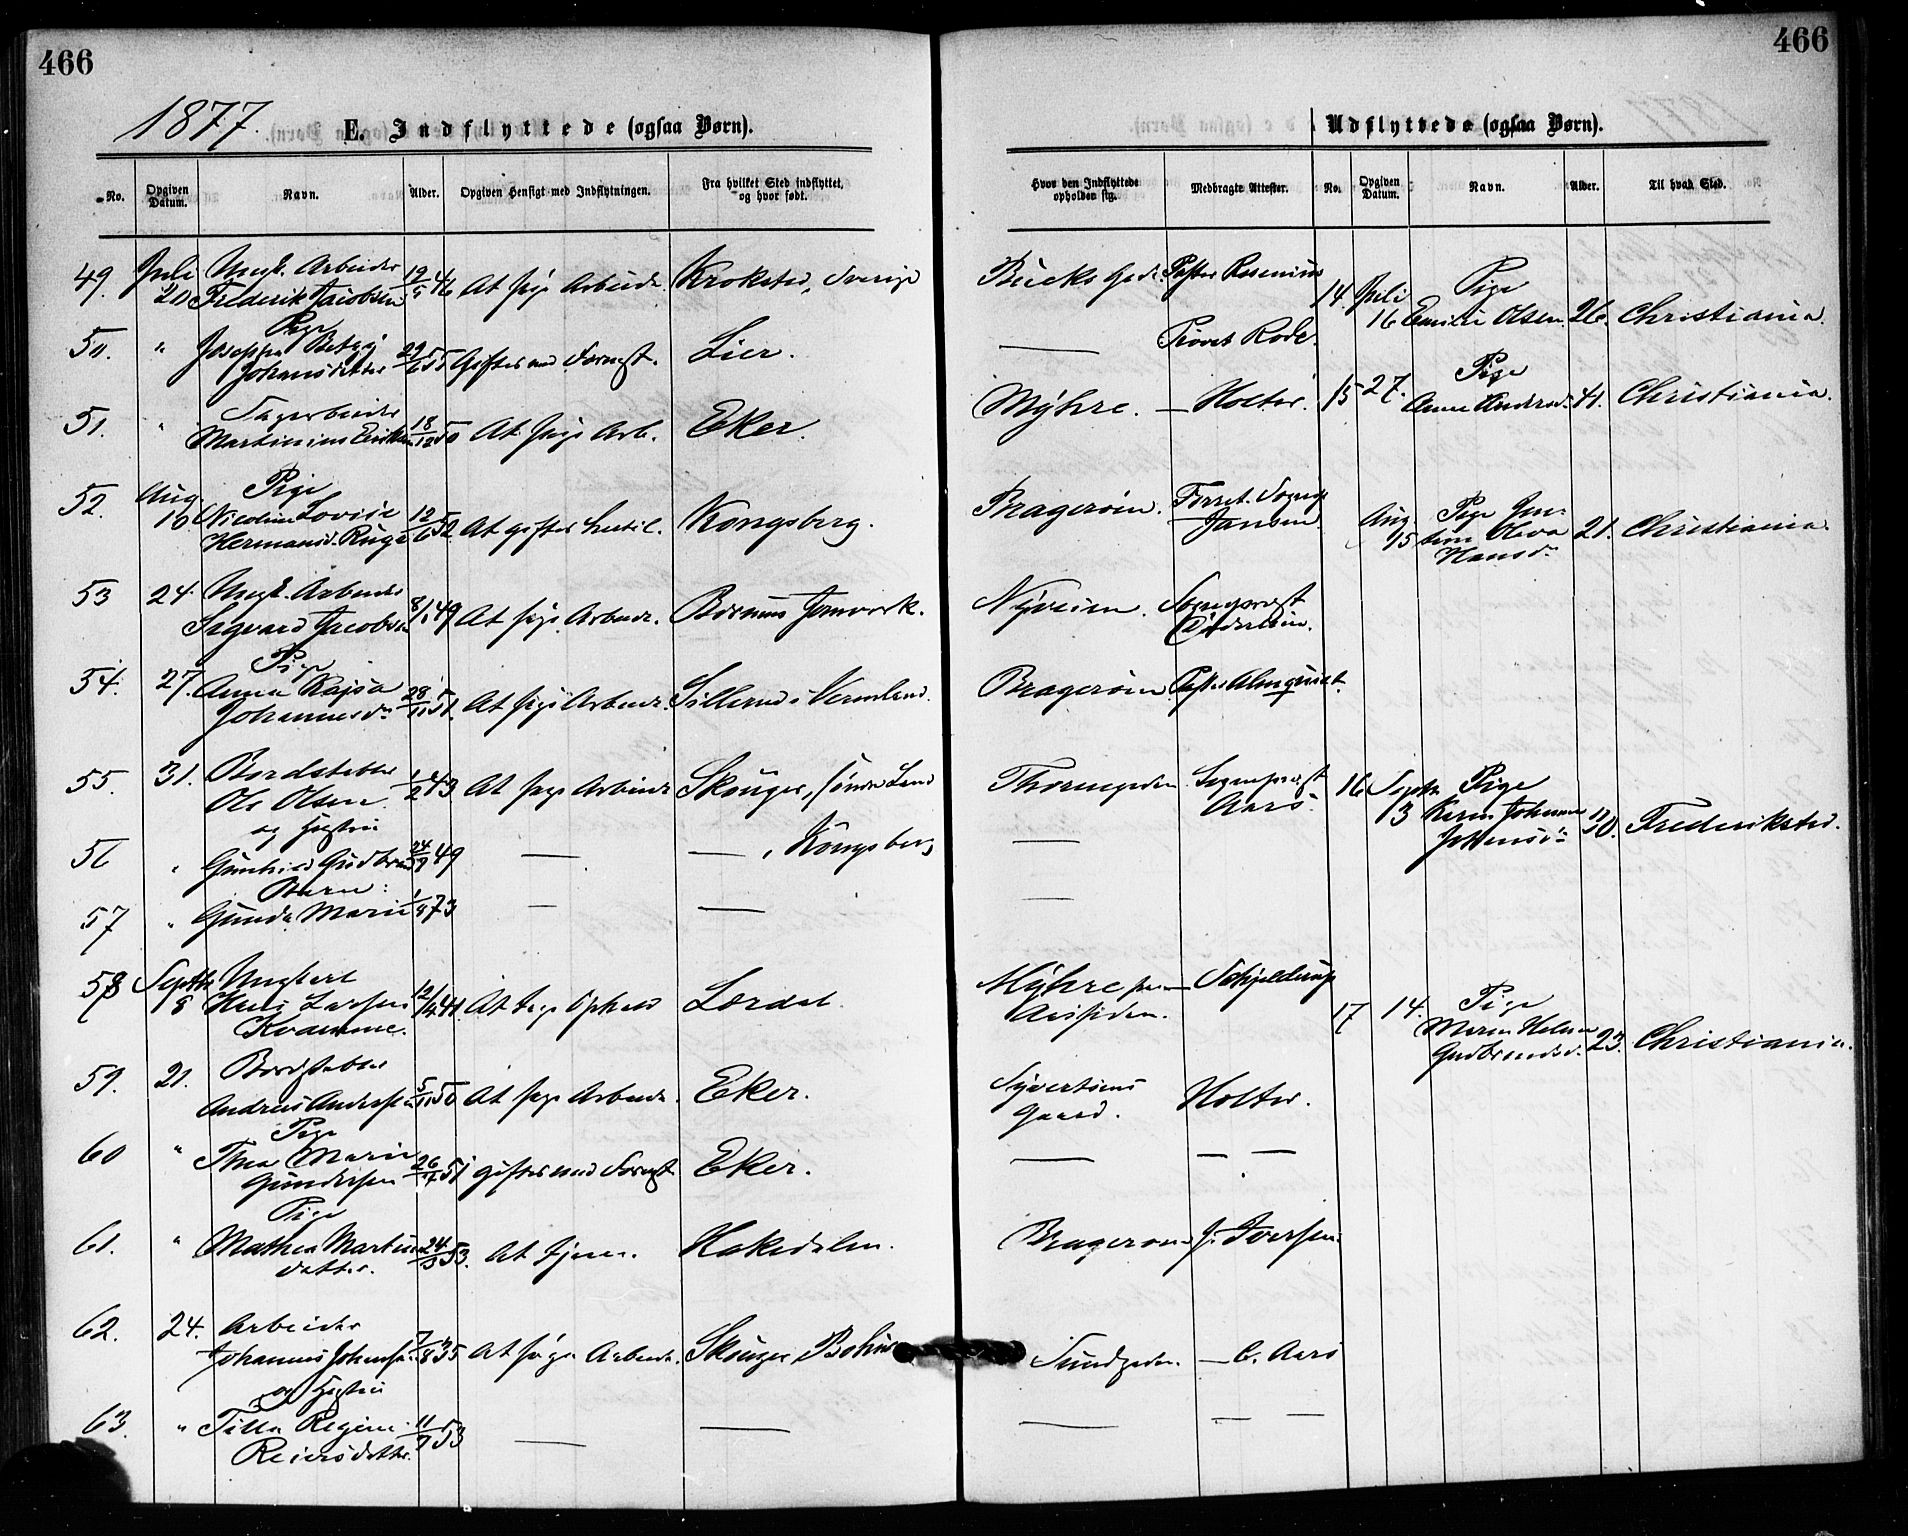 466
466
1877.
E. Indflyttede (ogsaa Børn).
Udflyttede (ogsaa Børn).
No.
Opgiven Datum.
Navn.
Alder.
Opgiven Hensigt med Indflytningen.
Fra hvilket Sted indflyttet, og hvor født.
Hvor den Indflyttede opholder sig.
Medbragte Attester.
No.
Opgiven Datum.
Navn.
Alder.
Til hvad Sted.
49. Juli 20. Ungk. Arbeider Frederik Jacobsen 19/5 46 At søge Arbeide. Krokstad, Sverige
Pastor Rosenius
14. Juli 16 Pige Emilie Olsen. 26. Christiania.
50. " Pige Josephe Betzy Johansdatter 29/6 55 Giftes med Foreg. Lier.
— Provst Rode.
51. " Sagarbeider Martinius Eriksen 18/12 50 At søge Arb. Eker.
Myhre. — Holter.
15 27. Pige Anne Andersd. 41. Christiania.
52. Aug. 10 Pige Nicoline Lovise Hermansd. Ruge 12/6 52. At giftes hertil. Kongsberg.
Bragerøen. Sogнep. Jansen
Aug. 15 Pige Oleva Hansd. 21. Christiania.
53 24. Ungk. Arbeider Sigvard Jacobsen 8/1 49 At søge Arbeide. Bærums Jernværk.
Nyveien. Sognepræst
54. 27. Pige Anna Kajsa Johannesd. 28/11 51. At søge Arbeide. Sillerud i Vermland.
Bragerøen. Pastor Almquist.
55. 31. Bordstabler Ole Olsen 1/2 43 At søge Arbeide Skouger, søndre Land
Thorengaden Sognepræst Aars.
16 Septbr 13 Pige Karen Johanne 30. Frederikstad.
56 " og Hustru Gunhild Gudbrandsd. 24/9 49 — —, Kongsberg
—
57 " Barn: Gunda Marie 1/4 73 — —
—
58 Septbr 8 Ungkarl Lassen Kvamme. 12/4 41. At tage Ophold Lærdal.
Myhre — Schjelderup
17 14. Pige Maren Helene Gudbrandsd. 23. Christiania.
59. 21. Bordstabler Andreas Andersen 5/11 50 At søge Arbeide. Eker.
Syvertsens Gaard. Holter.
60 " Pige Thea Marie Gundersen 26/7 51 giftes med Foreg. Eker.
— — —
61. " Pige Mathea Martinsdatter. 24/3 53. At tjene. Hakedalen.
Bragerøen J. Iversen
62. 24. Arbeider Johannes Johansen 7/8 35 At søge Arbeide. Skouger,
Sundgaden. — C. Aars
63. " og Hustru Tilla Regine Reiersdatter. 11/9 53 — —
— — —